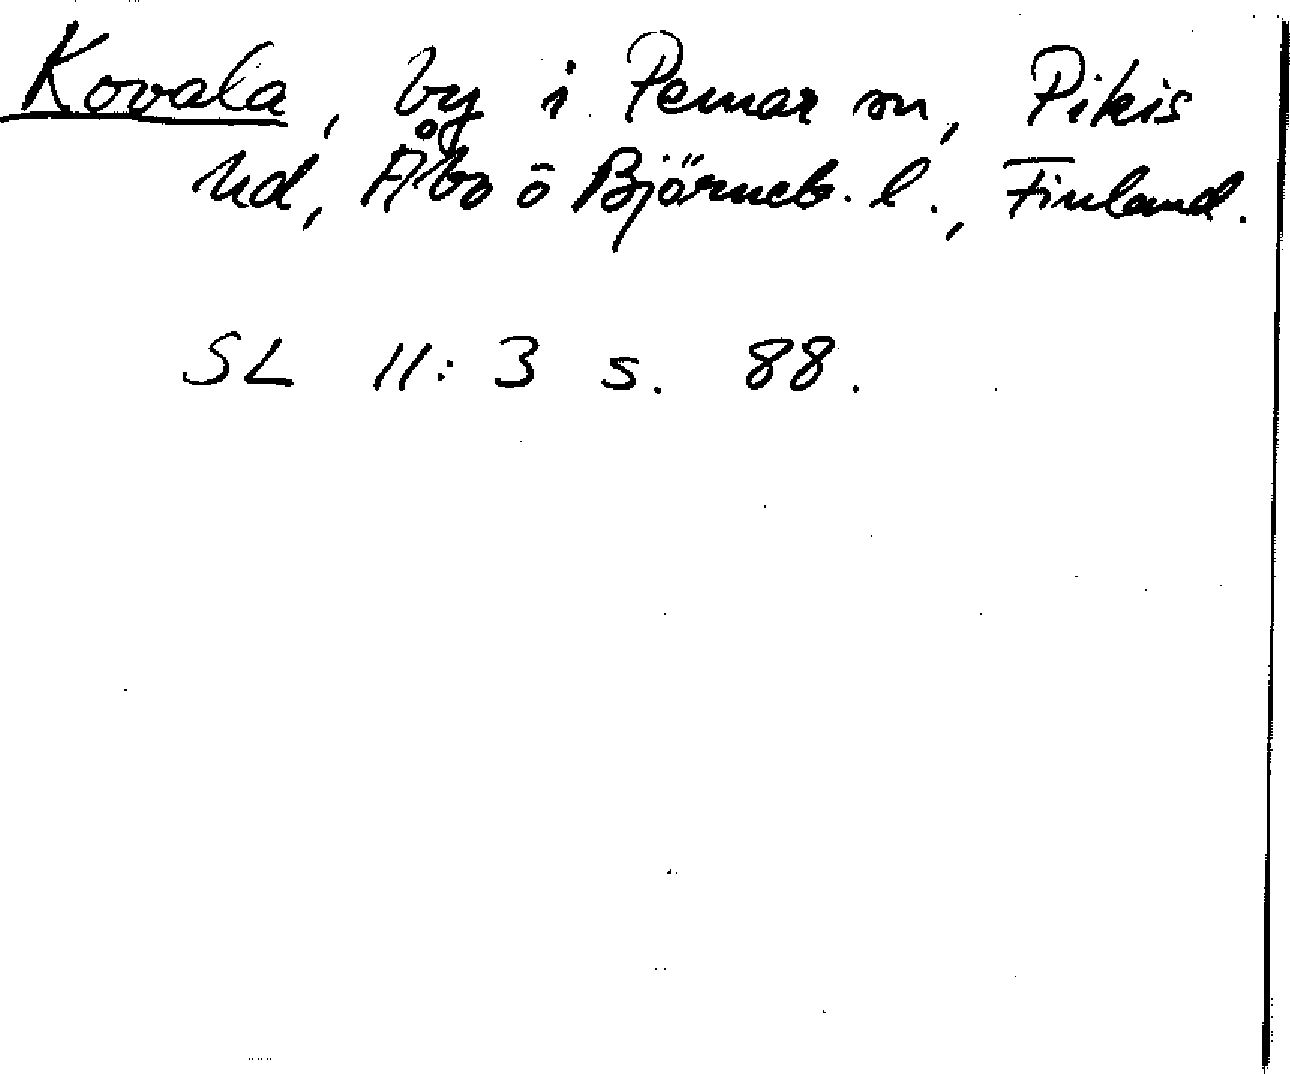 Kovala, by i Pemar sn, Pikis
hd, Åbo o Björneb. l., Finland.
SL 11:3 s. 88.